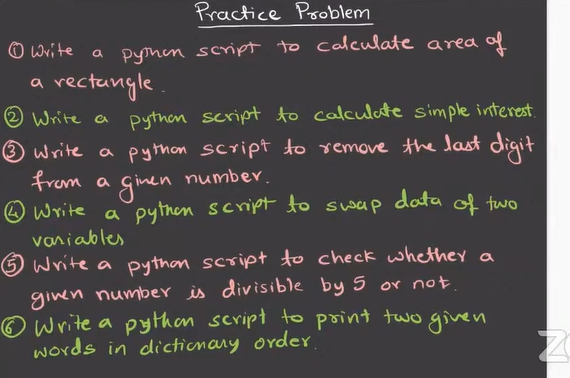 Practice Problem
① Write a python script to calculate area of
a rectangle.
② Write a python script to calculate simple interest.
③ Write a python script to remove the last digit
from a given number.
④ Write a python script to swap data of two
variables
⑤ Write a python script to check whether a
given number is divisible by 5 or not.
⑥ Write a python script to print two given
words in dictionary order.